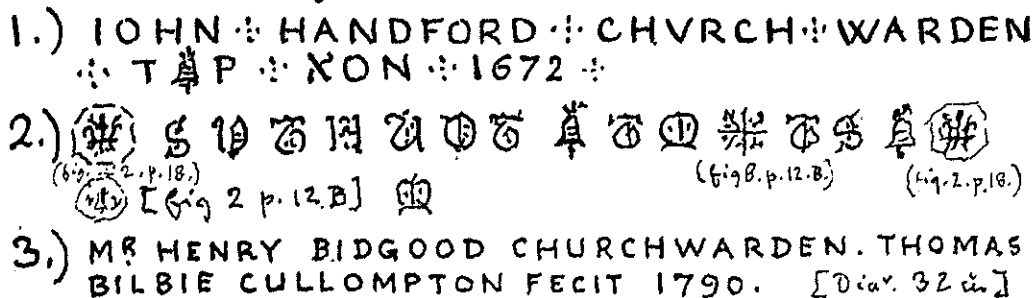 1.) IOHN ⁘ HANDFORD ⁘ CHVRCH ⁘ WARDEN
⁘ T P ⁘ XON ⁘ 1672 ⁘
2.) S V T H T T S
(fig. 2. p. 18.) (fig 8. p. 12. B.) (fig. 2. p. 18.)
[fig 2 p. 12. B]
3.) MR HENRY BIDGOOD CHURCHWARDEN. THOMAS
BILBIE CULLOMPTON FECIT 1790. [Diar. 32 in]